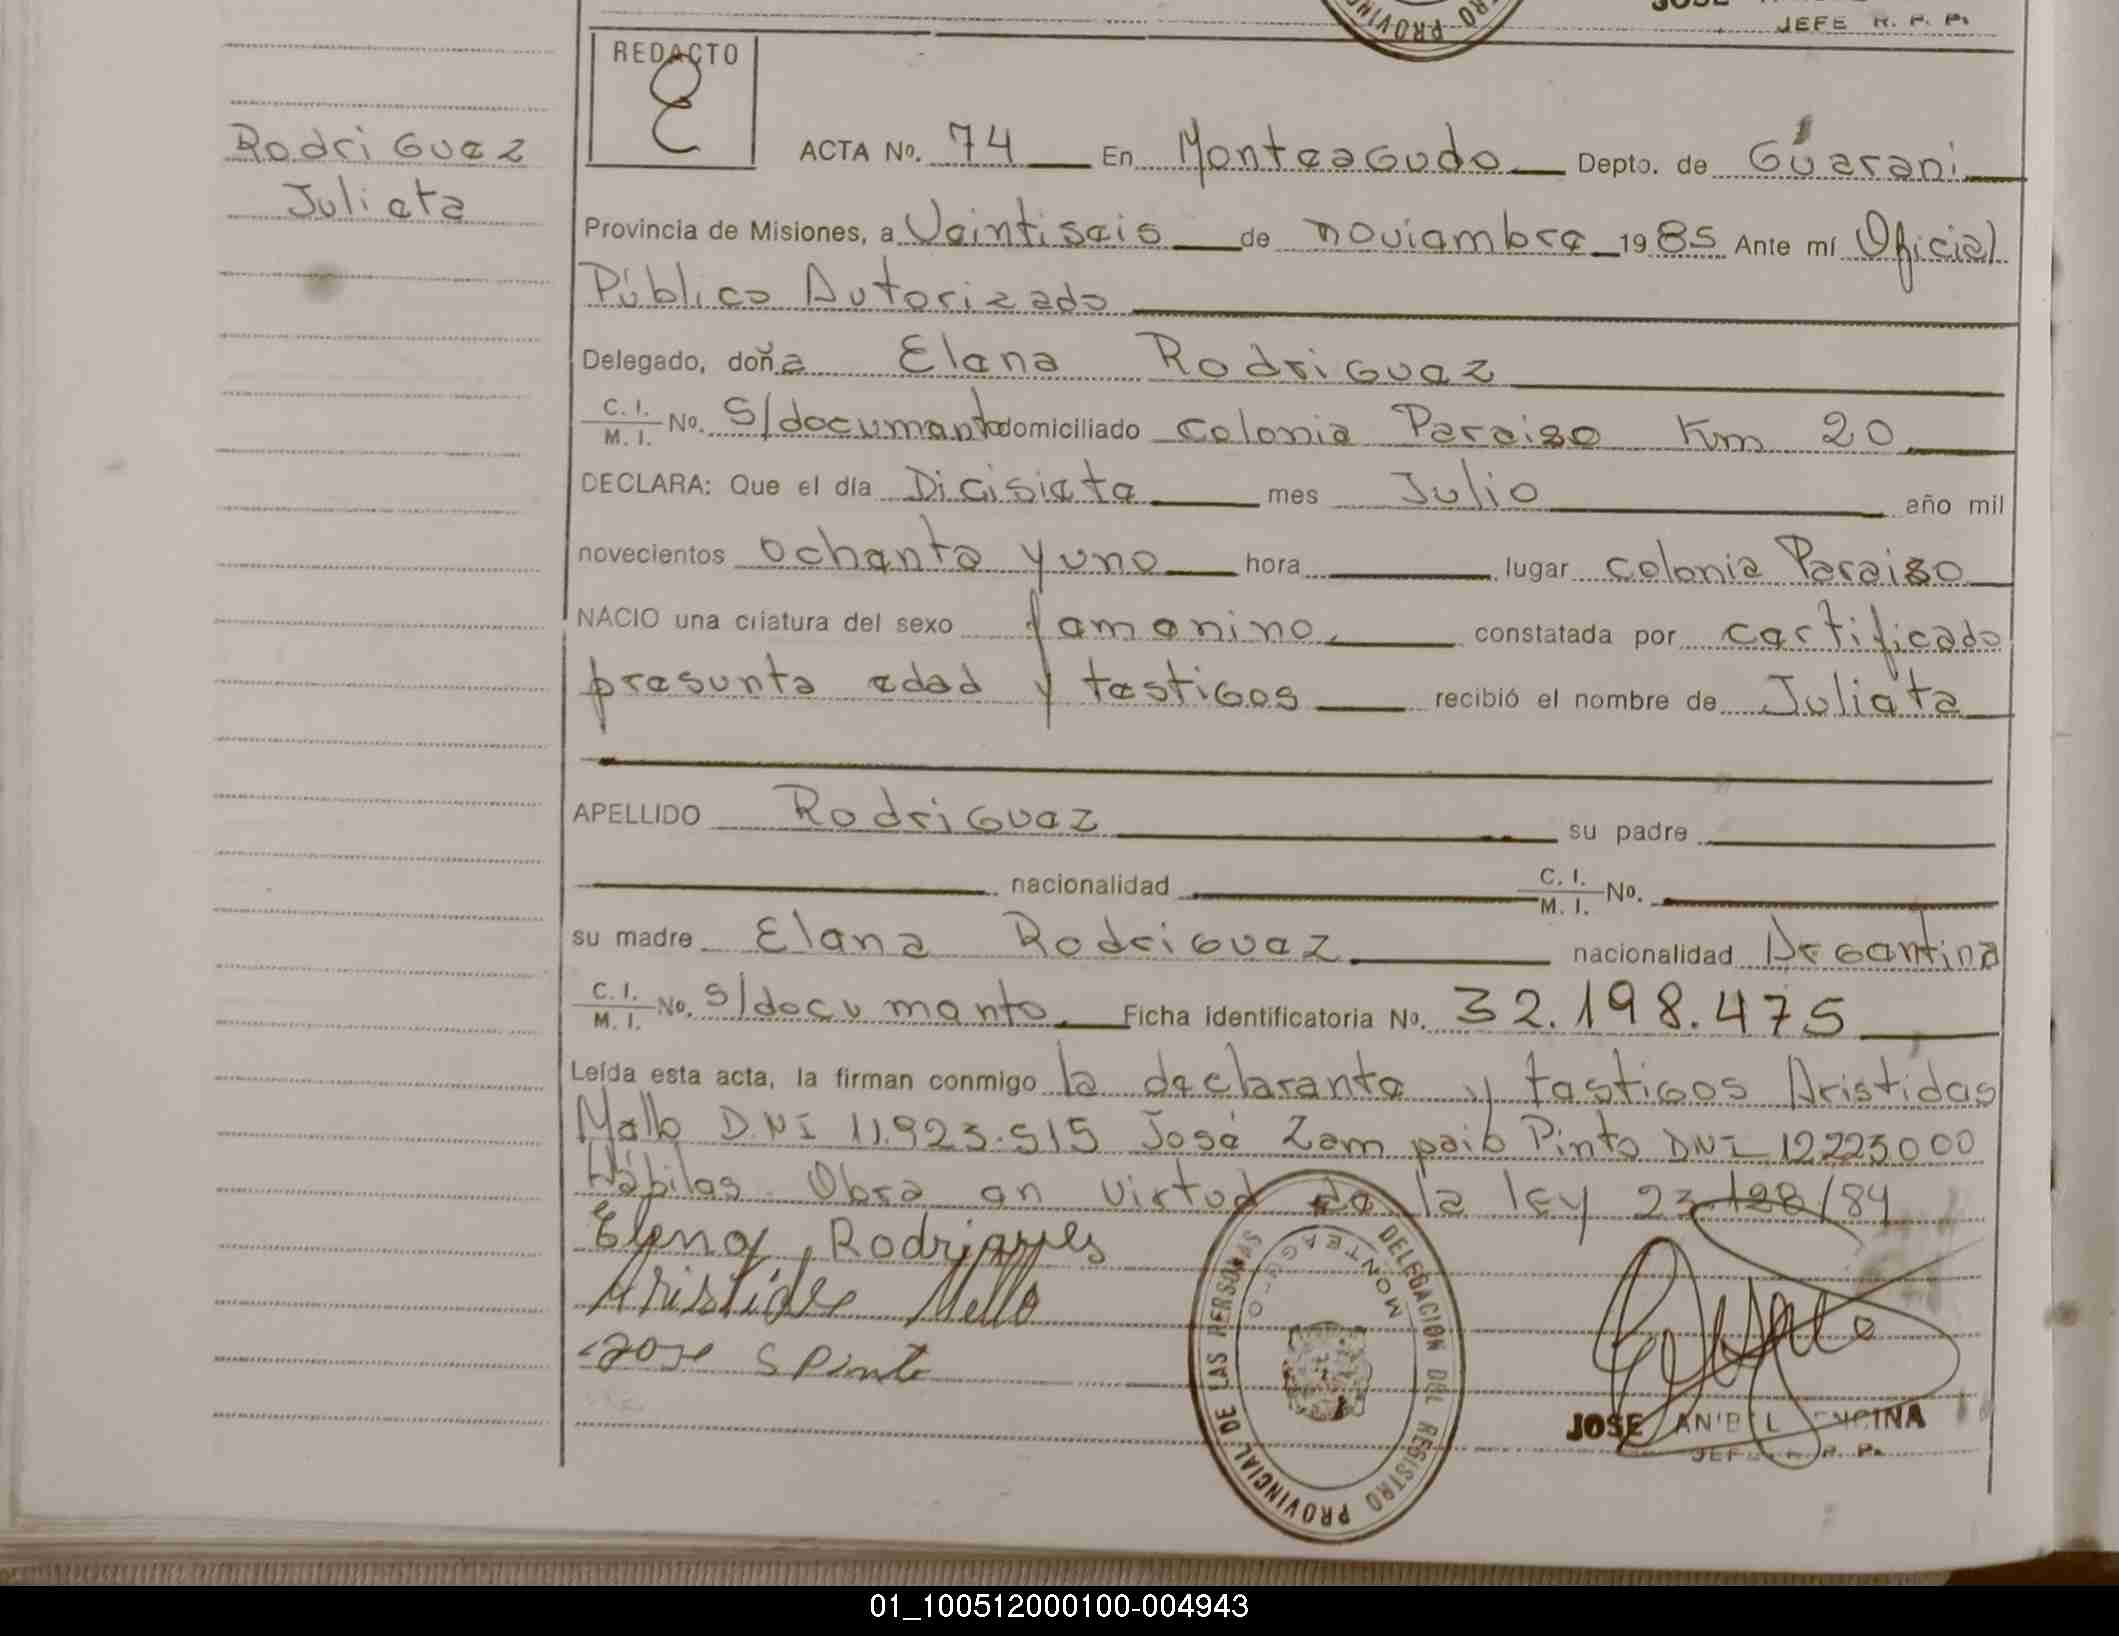 JEFE R. P. P.
REDACTO
Rodriguez
Julieta
ACTA No. 74 En Monteagudo Depto. de Guarani
Provincia de Misiones, a Veintiseis de noviembre 1985 Ante mí Oficial
Público Autorizado
Delegado, doña Elena Rodriguez
C. I. M. I. No. S/documento domiciliado colonia Paraiso Km 20
DECLARA: Que el día Dicisiete mes Julio año mil
novecientos ochenta y uno hora lugar colonia Paraiso
NACIO una criatura del sexo femenino constatada por certificado
presunta edad y testigos recibió el nombre de Julieta
APELLIDO Rodriguez su padre
nacionalidad C. I. M. I. No.
su madre Elena Rodriguez nacionalidad Argentina
C. I. M. I. No. s/documento. Ficha identificatoria No. 32.198.475
Leída esta acta, la firman conmigo la declarante y testigos Aristides
Mello D.N.I 11.923.515 José Zam paio Pinto DNI 12225000
Hábiles. Obra en virtud de la ley 23.128/84
Elena Rodrigues
Aristides Mello
Jose S Pinto
DELEGACION DEL REGISTRO PROVINCIAL DE LAS PERSONAS
MONTEAGUDO
JOSE ANIBAL ENCINA
JEFE R. P. P.
01_100512000100-004943